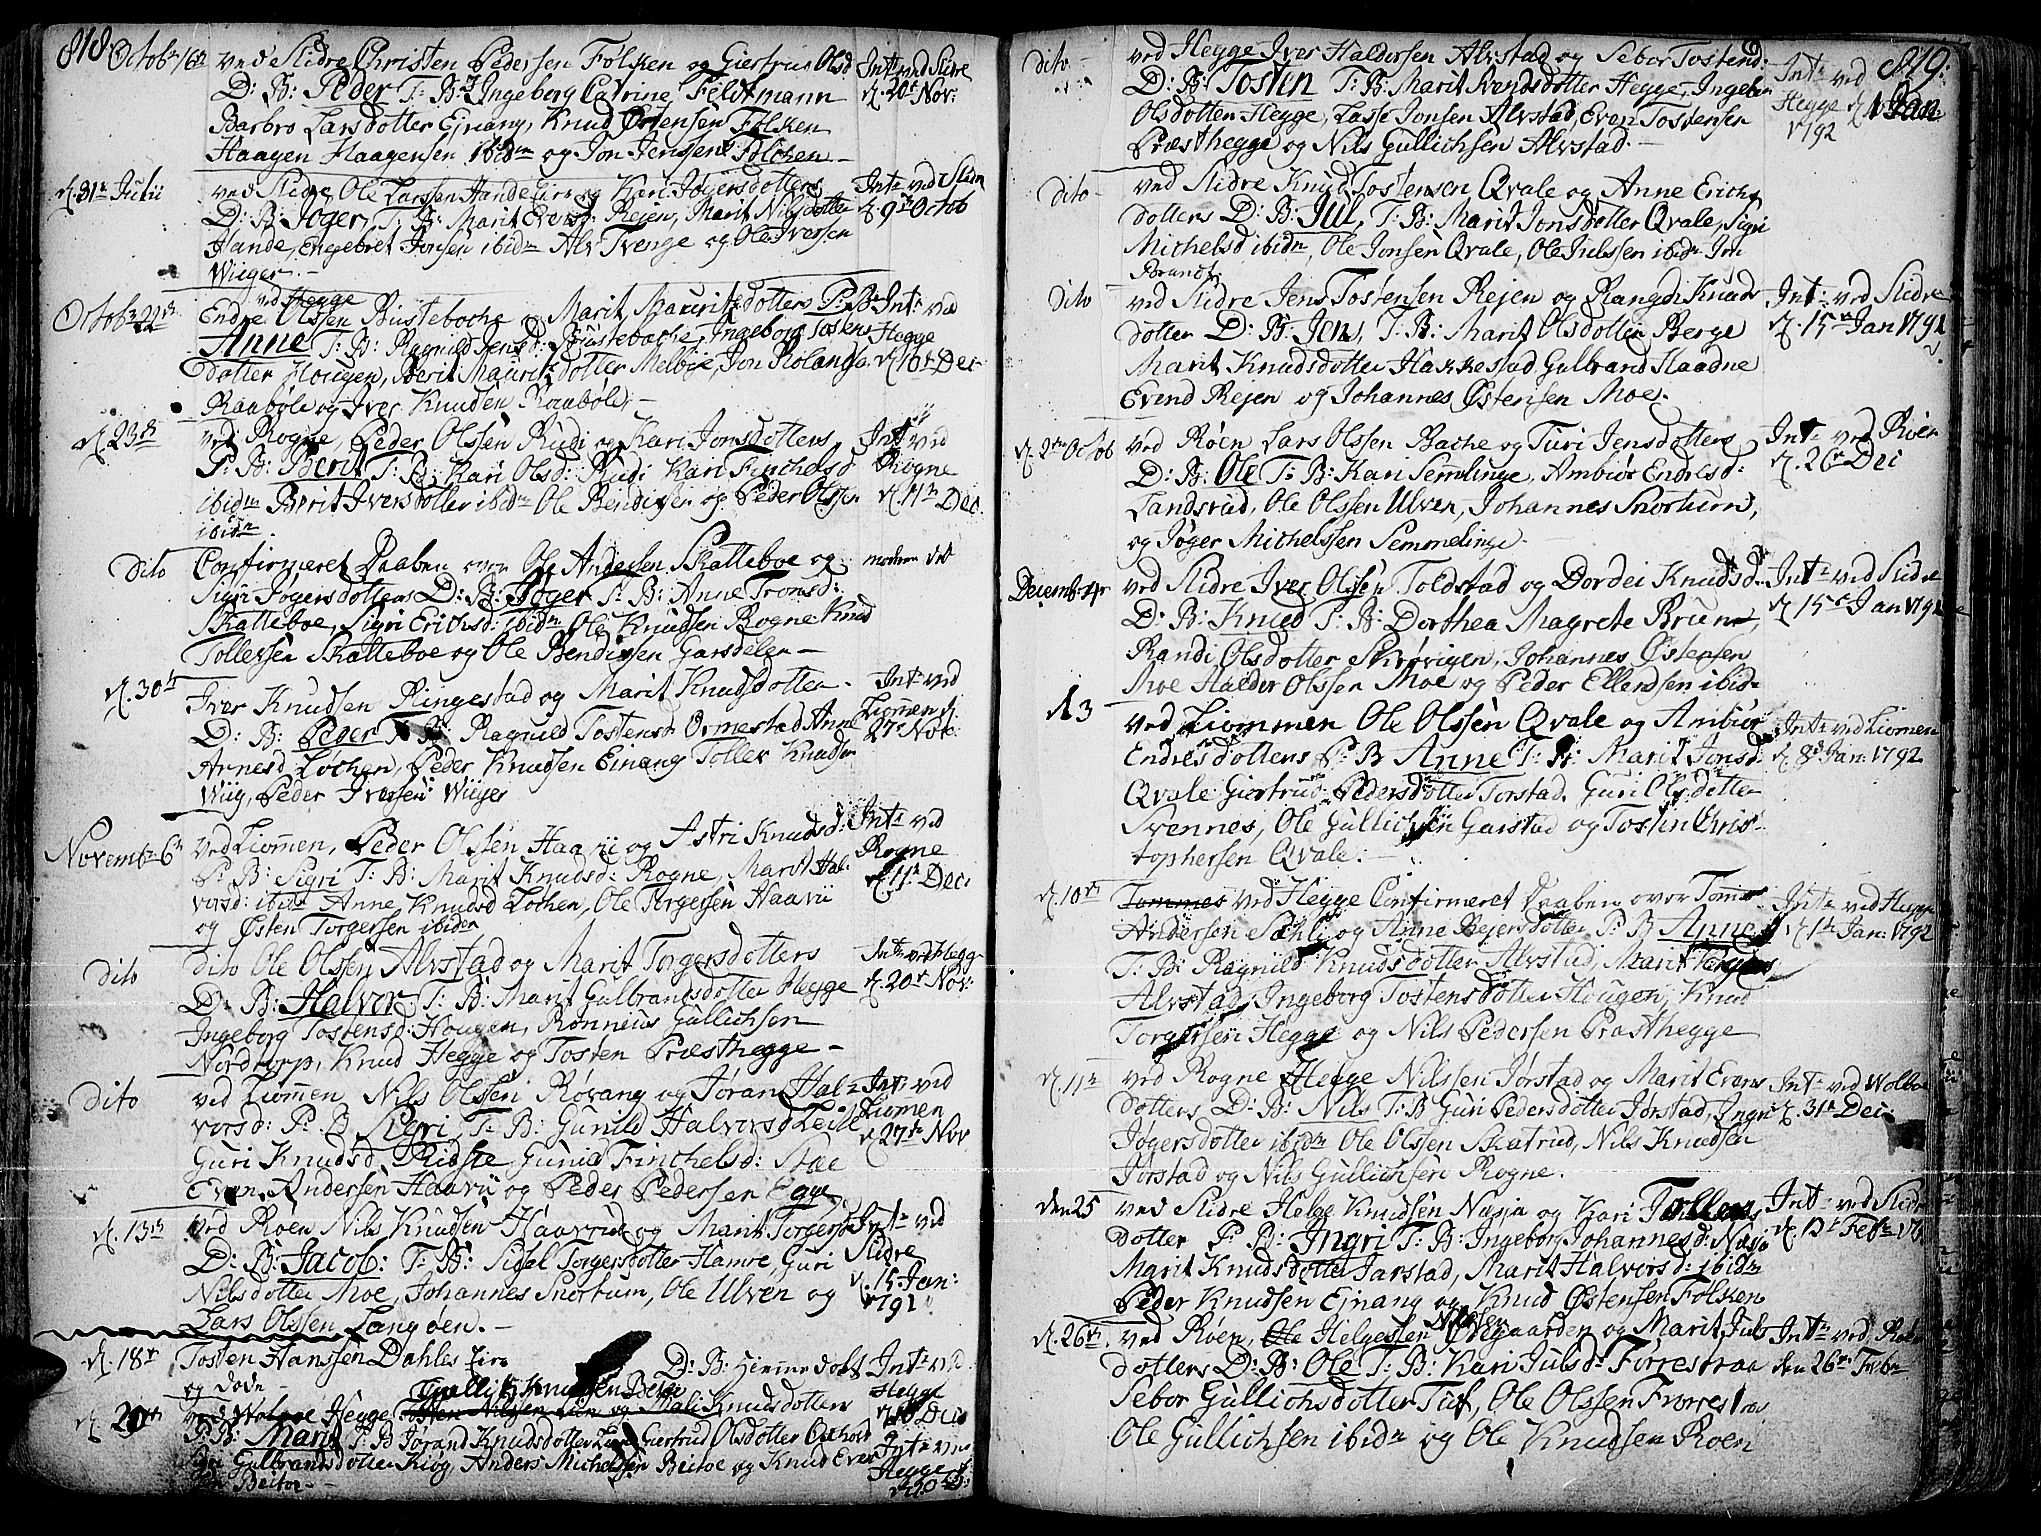 818
Octobr 16de ved Slidre Christen Pedersen Følken og Giertrud Olsd
D: B: Peder T: B: Ingeborg Catrine Feldtmann
Barbro Larsdotter Ejnang, Knud Østensen Følken
Haagen Haagensen ibidm og Jon Jenssen Følchen
Int: ved Slidre
d. 20de Nov:
d. 31te Julii ved Slidre Ole Larssen Hande og Kari Jøgersdotters
D: B: Jøger, T: B: Marit Evensd: Rejen, Marit Nilsdotter
Hande, Engebret Jonsen ibidm Alv Tvenge og Ole Iversen
Wiiger.
Int: ved Slidre
d. 9de Octob
Octobr 22de ved Hegge
Endre Olssen Bustebache og Marit Mauritsdotters P: B:
Anne T: B: Ragnild Jensd: Bustebache, Ingeborg Tostens
dotter Hougen, Berit Mauritsdotter Melbye, Jon Rolands
Raabøle og Iver Knudsen Raabøle.
Int: ved
Hegge
d. 16de Dec
d. 23de ved Rogne, Peder Olssen Rudi og Kari Jonsdotters
P: B: Berit T: B: Kari Olsd: Rudi Kari Finchelsd
ibidm Berit Iversdotter ibidm Ole Bendixen og Peder Olssen
ibidm.
Int: ved
Rogne
d. 11te Dec.
dito Confirmeret Daaben over Ole Andersen Skatteboe og
Sigri Jøgersdotters D: B: Jøger T: B: Anne Tronsd:
Skatteboe, Sigri Erichsd: ibidm Ole Knudsen Rogne Knud
Tollevsen Skatteboe og Ole Bendixen Garsdelen
d. 30te Iver Knudsen Ringestad og Marit Knudsdotters
D: B: Peder T: B: Ragnild Tostensd Ormestad Anne
Arnesd Lochen, Peder Knudsen Einang Tollev Knudsen
Wiig, Peder Iversen Wiiges
Int: ved
Liomen d.
27de Nov:
Novembr 6te ved Liomen, Peder Olssen Haavii og Astri Knudsd:
P: B: Sigri T: B: Marit Knudsd: Rogne, Marit Hal-
vorsd: ibidm Anne Knudsd Lochen, Ole Torgersen Haavii
og Østen Torgersen ibidm
Int: ved
Rogne
d. 11te Dec:
dito dito Ole Olssen Alvstad og Marit Torgersdotters
D: B: Halvor T: B: Marit Gulbrandsdotter Hegge
Ingeborg Tostensd: Hougen, Ronneus Gullichsen
Nordtorp, Knud Hegge og Tosten Præsthegge
Int: ved Hegge
d. 20de Nov:
dito ved Liomen, Nils Olssen Røvang og Jøran Hal-
vorsd: P: B Sigri, T: B: Gunild Halvorsd Leite
Guri Knudsd Ridste Gunild Finchelsd: Stæe
Even Andersen Haavii og Peder Pedersen Egge
Int: ved
Liomen
d. 27de Nov
d. 13de ved Røen Nils Knudsen Haavrud og Marit Torgersd
D: B: Jacob: T: B: Sigel Torgersdotter Hamre, Guri
Nilsdotter Moe, Johannes Snortum, Ole Ulven og
Lars Olssen Langøen.
Int: ved
Slidre
d. 15 Jan:
1792
d. 18de Tosten Hanssen Dahles D: B: hiemme døbt
og døde
Int: ved
Hegge
d. 20de ved Hegge Gullik Knudsen Beitoe og Mali Knudsdotters
P: B: Marit T: B Jørand Knudsdotter Giertrud Olsdotter Oxhold
Gulbrandsdotter Kiøg, Anders Michelsen Beitoe og Knud Evers
Beitoe
Int: ved
Hegge
819.
dito ved Hegge Iver Haldorsen Alvstad og Sebor Tostend:
D: B: Tosten T: B: Marit Svendsdotter Hegge, Ingebor
Olsdotter Hegge, Lasse Jonsen Alvstad, Even Tostensen
Præsthegge og Nils Gullichsen Alvstad.
Int: ved
Hegge d. 1 Jan
1792
dito ved Slidre Knud Tostensen Qvale og Anne Erichs
dotters D: B: Jul, T: B: Marit Jonsdotter Qvale, Sigri
Michelsd ibidm, Ole Jonsen Qvale, Ole Julssen ibidm Jon
Brandt
dito ved Slidre Jens Tostensen Rejen og Rangdi Knuds
dotter D: B: Jen, T: B: Marit Olsdotter Berge
Marit Knudsdotter Hakkestad Gulbrand Haadne
Evend Rejen og Johannes Østensen Moe.
Int: ved Slidre
d. 15de Jan 1792
d. 2den Octob ved Røen Lars Olssen Bache og Turi Jensdotters
D: B: Ole T: B: Kari Semmlinge, Ambiør Endresd:
Landsrud, Ole Olssen Ulven, Johannes Snortum,
og Jøger Michelssen Semmelinge
Int: ved Røen
d. 26de Dec
Decembr 4de ved Slidre Iver Olssen Toldstad og Dordei Knudsd.
D: B: Knud T: B: Dorthea Magrete Bruun,
Randi Olsdotter Skrøvigen, Johannes Østensen
Moe Haldor Olssen Moe og Peder Ellendsen ibid
Int: ved Slidre
d. 15de Jan 1792
d 3 ved Liommen Ole Olssen Qvale og Ambiør
Endresdotters P: B Anne T: B: Marit Jonsd:
Qvale Giertrud Pedersdotter Torstad, Guri Olsdotter
Svennes, Ole Gullichsen Garstad og Tosten Chris-
tophersen Qvale.
Int: ved Liomen
d. 8de Jan: 1792
d. 10de Tommes ved Hegge Confirmeret Daaben over Tomes
Andersen Sæhli og Anne Bejersdotter P: B Anne
T: B: Ragnild Knudsdotter Alvstad, Marit Torgers
Alvstad, Ingeborg Tostensdotter Hougen, Knud
Torgersen Hegge og Nils Pedersen Præsthegge
Int: ved Hegge
d. 1te Jan: 1792
d. 11te ved Rogne Helge Nilssen Jørstad og Marit Evens
dotters D: B: Nils T: B Guri Pedersdotter Jørstad, Ingri
Jøgersdotter ibidm Ole Olssen Skatrud, Nils Knudsen
Jørstad og Nils Gullichsen Rogne.
Int: ved Wolboe
d. 31te Dec:
den 25 ved Slidre Helge Knudsen Næsja og Kari Tollevs
dotter P: B: Ingri T: B: Ingeborg Johannesd: Næsja
Marit Knudsdotter Jarstad, Marit Halvorsd: ibidm
Peder Knudsen Ejnang og Knud Østensen Følken
Int: ved Slidr
d. 12te Febr
d. 26de ved Røen, Ole Helgessen Nilssen Øvgaarden og Marit Juls
dotters D: B: Ole T: B: Kari Julsd: Førrestraa
Sebor Gullichsdotter Tuf, Ole Olssen Frorrestraa
Ole Gullichsen ibidm og Ole Knudsen Røen
Int: ved Røe
den 26de Febr